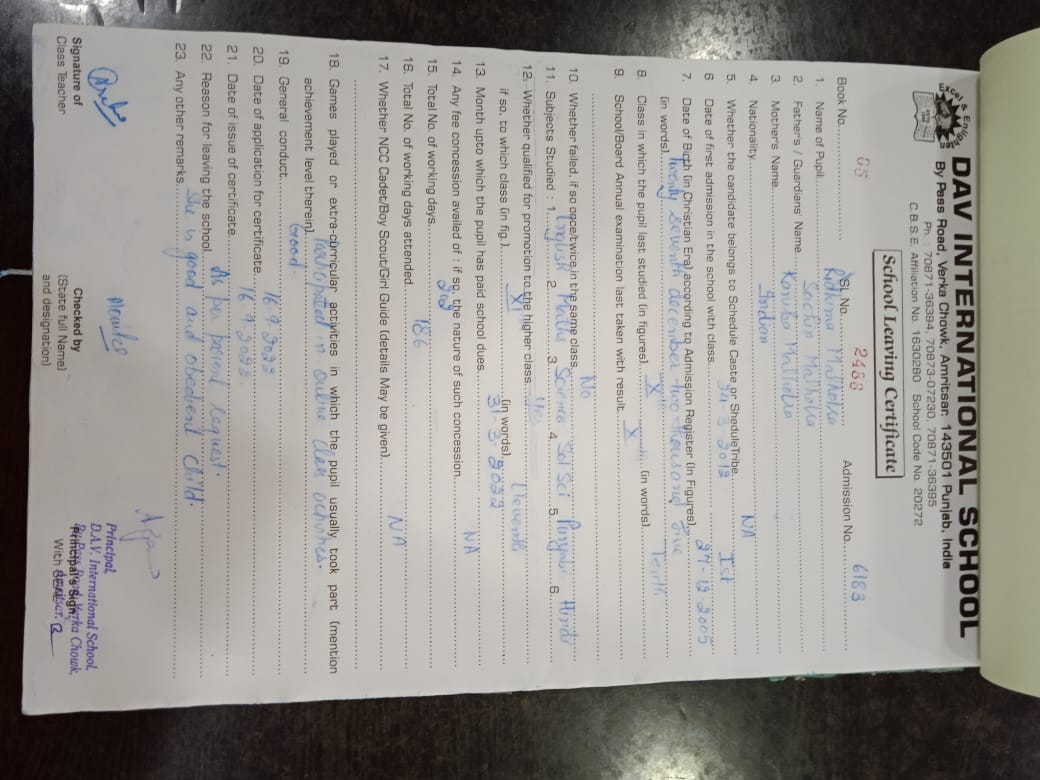 Excel & Enlighten
DAV INTERNATIONAL SCHOOL
By Pass Road, Verka Chowk, Amritsar 143501 Punjab, India
Ph.: 70871-36394, 70873-07230, 70871-36395
C.B.S.E. Affiliation No. 1630280 School Code No. 20272
School Leaving Certificate
Book No. 65 SL No. 2483 Admission No. 6183
1. Name of Pupil Ridhima Malhotra
2. Father's / Guardians' Name Sachin Malhotra
3. Mother's Name Kanika Malhotra
4. Nationality Indian
5. Whether the candidate belongs to Schedule Caste or SheduleTribe NA
6 Date of first admission in the school with class 3 2012 Ist
7. Date of Birth (in Christian Era) according to Admission Register (In Figures) 27-12-2005
(in words) Twenty seventh december two thousand five
8. Class in which the pupil last studied (in figures) X (in words) Tenth
9. School/Board Annual examination last taken with result X
10. Whether failed, if so once/twice in the same class No
11. Subjects Studied : 1. English 2. Maths 3. Science 4. S.St Sci 5. Punjabi 6. Hindi
12. Whether qualified for promotion to the higher class Yes
if so, to which class (in fig.) XI (in words) Eleventh
13. Month upto which the pupil has paid school dues 31-3-2022
14. Any fee concession availed of : if so, the nature of such concession NA
15. Total No. of working days
16. Total No. of working days attended 186
17. Whether NCC Cadet/Boy Scout/Girl Guide (details May be given) NA
18. Games played or extra-curricular activities in which the pupil usually took part (mention
achievement level therein) Participated in online class activities.
19. General conduct. Good
20. Date of application for certificate.
21. Date of issue of certificate.
22. Reason for leaving the school As per parent request.
23. Any other remarks. She is good and obedient child.
Signature of
Class Teacher
Checked by
(State full Name)
and designation)
Principal,
D.A.V. International School
By Pass Road, Verka Chowk,
Amritsar.
Principal's Sign.
With SEAL